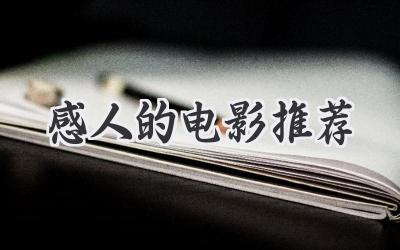 感人的电影推荐